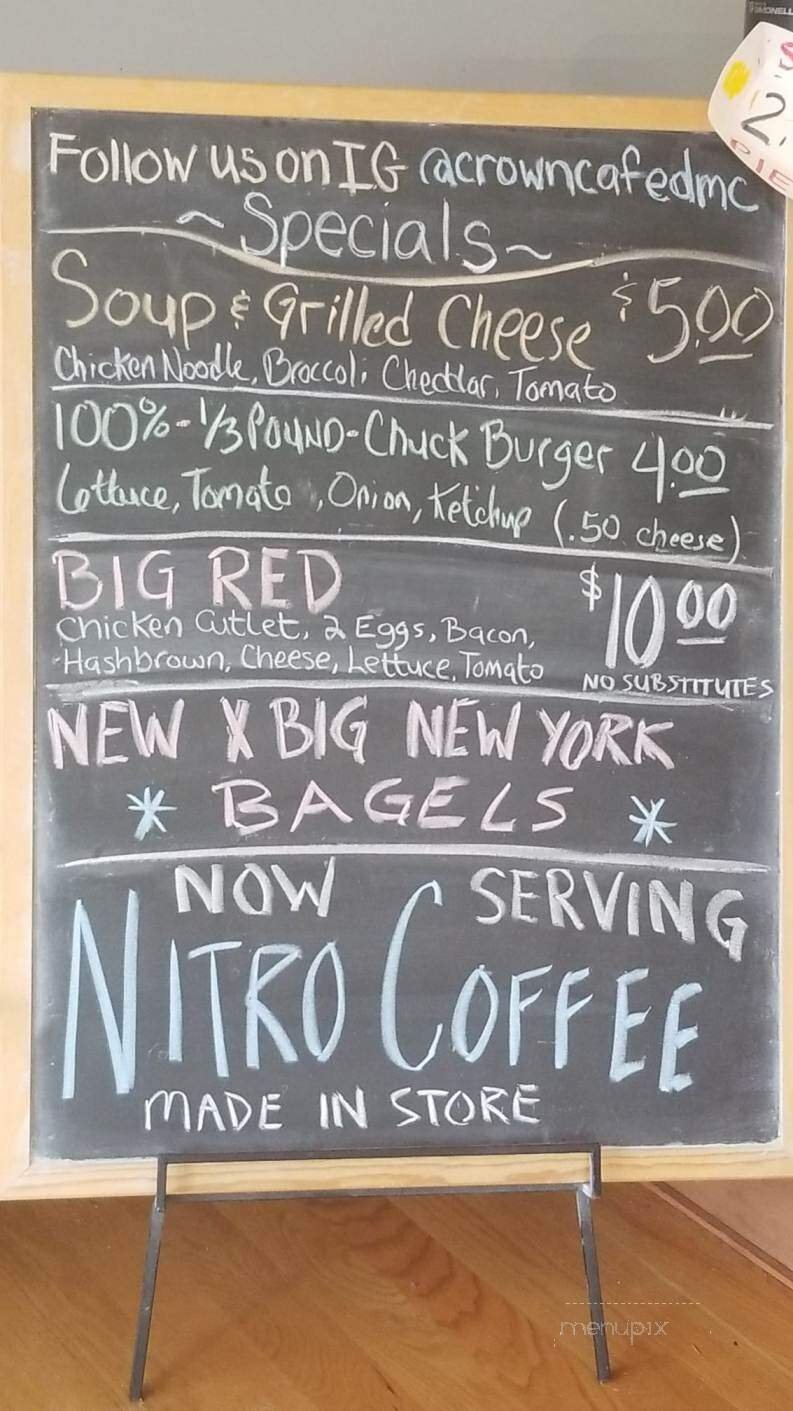 Follow us on IG @crowncafedmc
~Specials~
Soup & Grilled Cheese $5.00
Chicken Noodle, Broccoli Cheddar, Tomato
100%-1/3 POUND-Chuck Burger 4.00
Lettuce, Tomato, Onion, Ketchup (.50 cheese)
BIG RED $10.00
Chicken Cutlet, 2 Eggs, Bacon,
Hashbrown, Cheese, Lettuce, Tomato
NO SUBSTITUTES
NEW X BIG NEW YORK
* BAGELS *
NOW SERVING
NITRO COFFEE
MADE IN STORE
2.
PIE
menupix